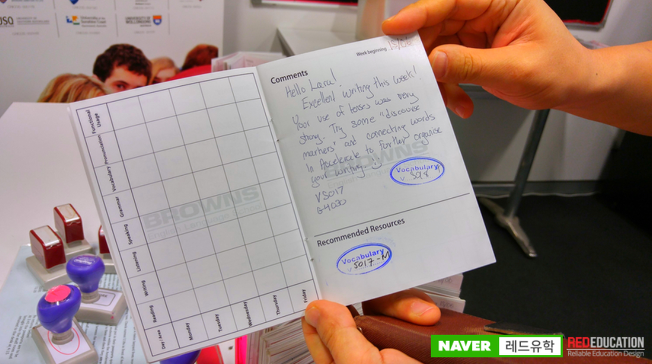 Functional Usage
Pronunciation
Vocabulary
Grammar
Speaking
Listening
Writing
Reading
Monday
Tuesday
Wednesday
Thursday
Friday
BROWNS
Week beginning
Comments
Hello
Excellent writing this week!
Your use of tenses was very
strong. Try some "discourse
markers" and connecting words
to to further organise
your writing.
VS017
Vocabulary
Recommended Resources
Vocabulary
S017-M
NAVER 레드유학
REDEDUCATION
Reliable Education Design